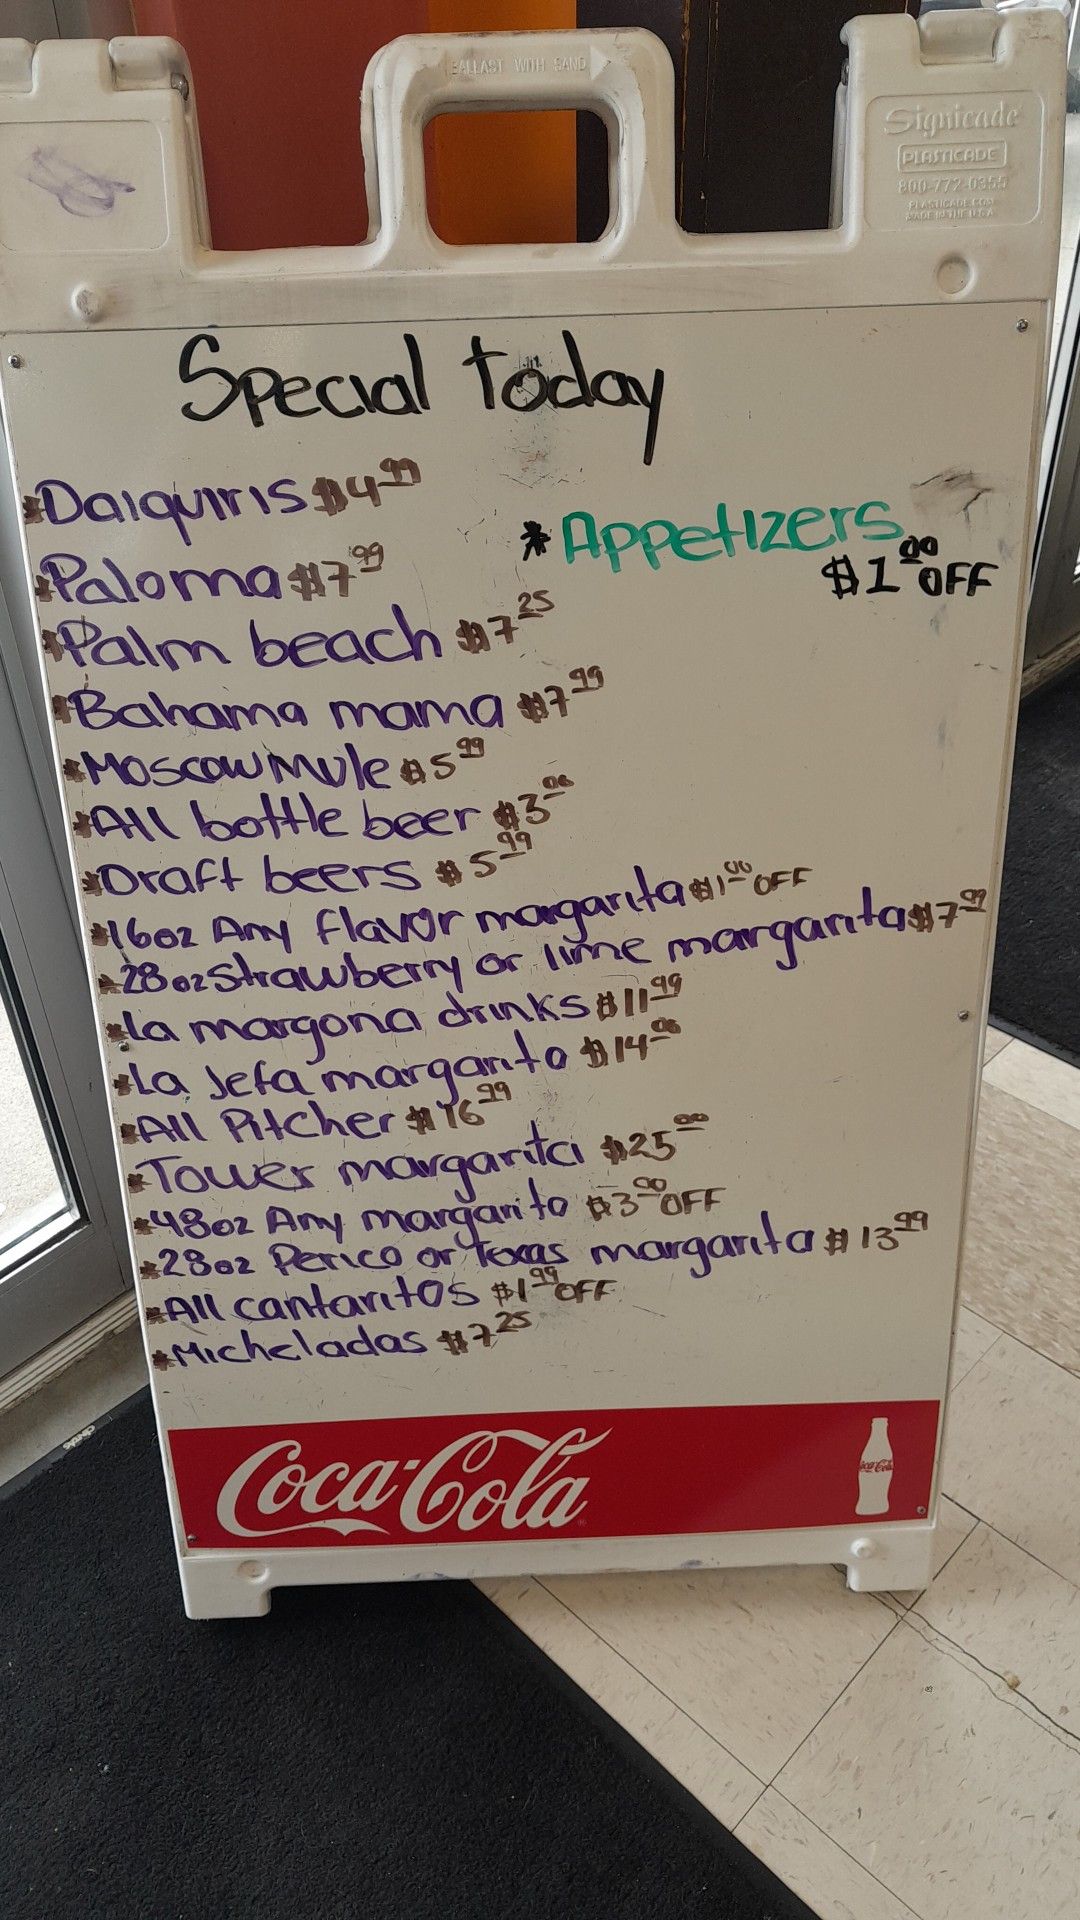 BALLAST WITH SAND
Signicade
PLASTICADE
800-772-0355
PLASTICADE.COM
MADE IN THE U.S.A
Special today
*Daiquiris $4.99
*Appetizers
$1.00 OFF
*Paloma $7.99
*Palm beach $7.25
*Bahama mama $7.99
*Moscow Mule $5.99
*All bottle beer $3.00
*Draft beers $5.99
*16oz Any flavor margarita $1.00 OFF
*28oz strawberry or lime margarita $7.99
*La margona drinks $11.99
*La Jefa margarita $14.00
*All Pitcher $16.99
*Tower margarita $25.00
*48oz Any margarita $3.00 OFF
*28oz Perico or Texas margarita $13.99
*All cantaritos $1.99 OFF
*Micheladas $7.25
Coca-Cola
Coca-Cola